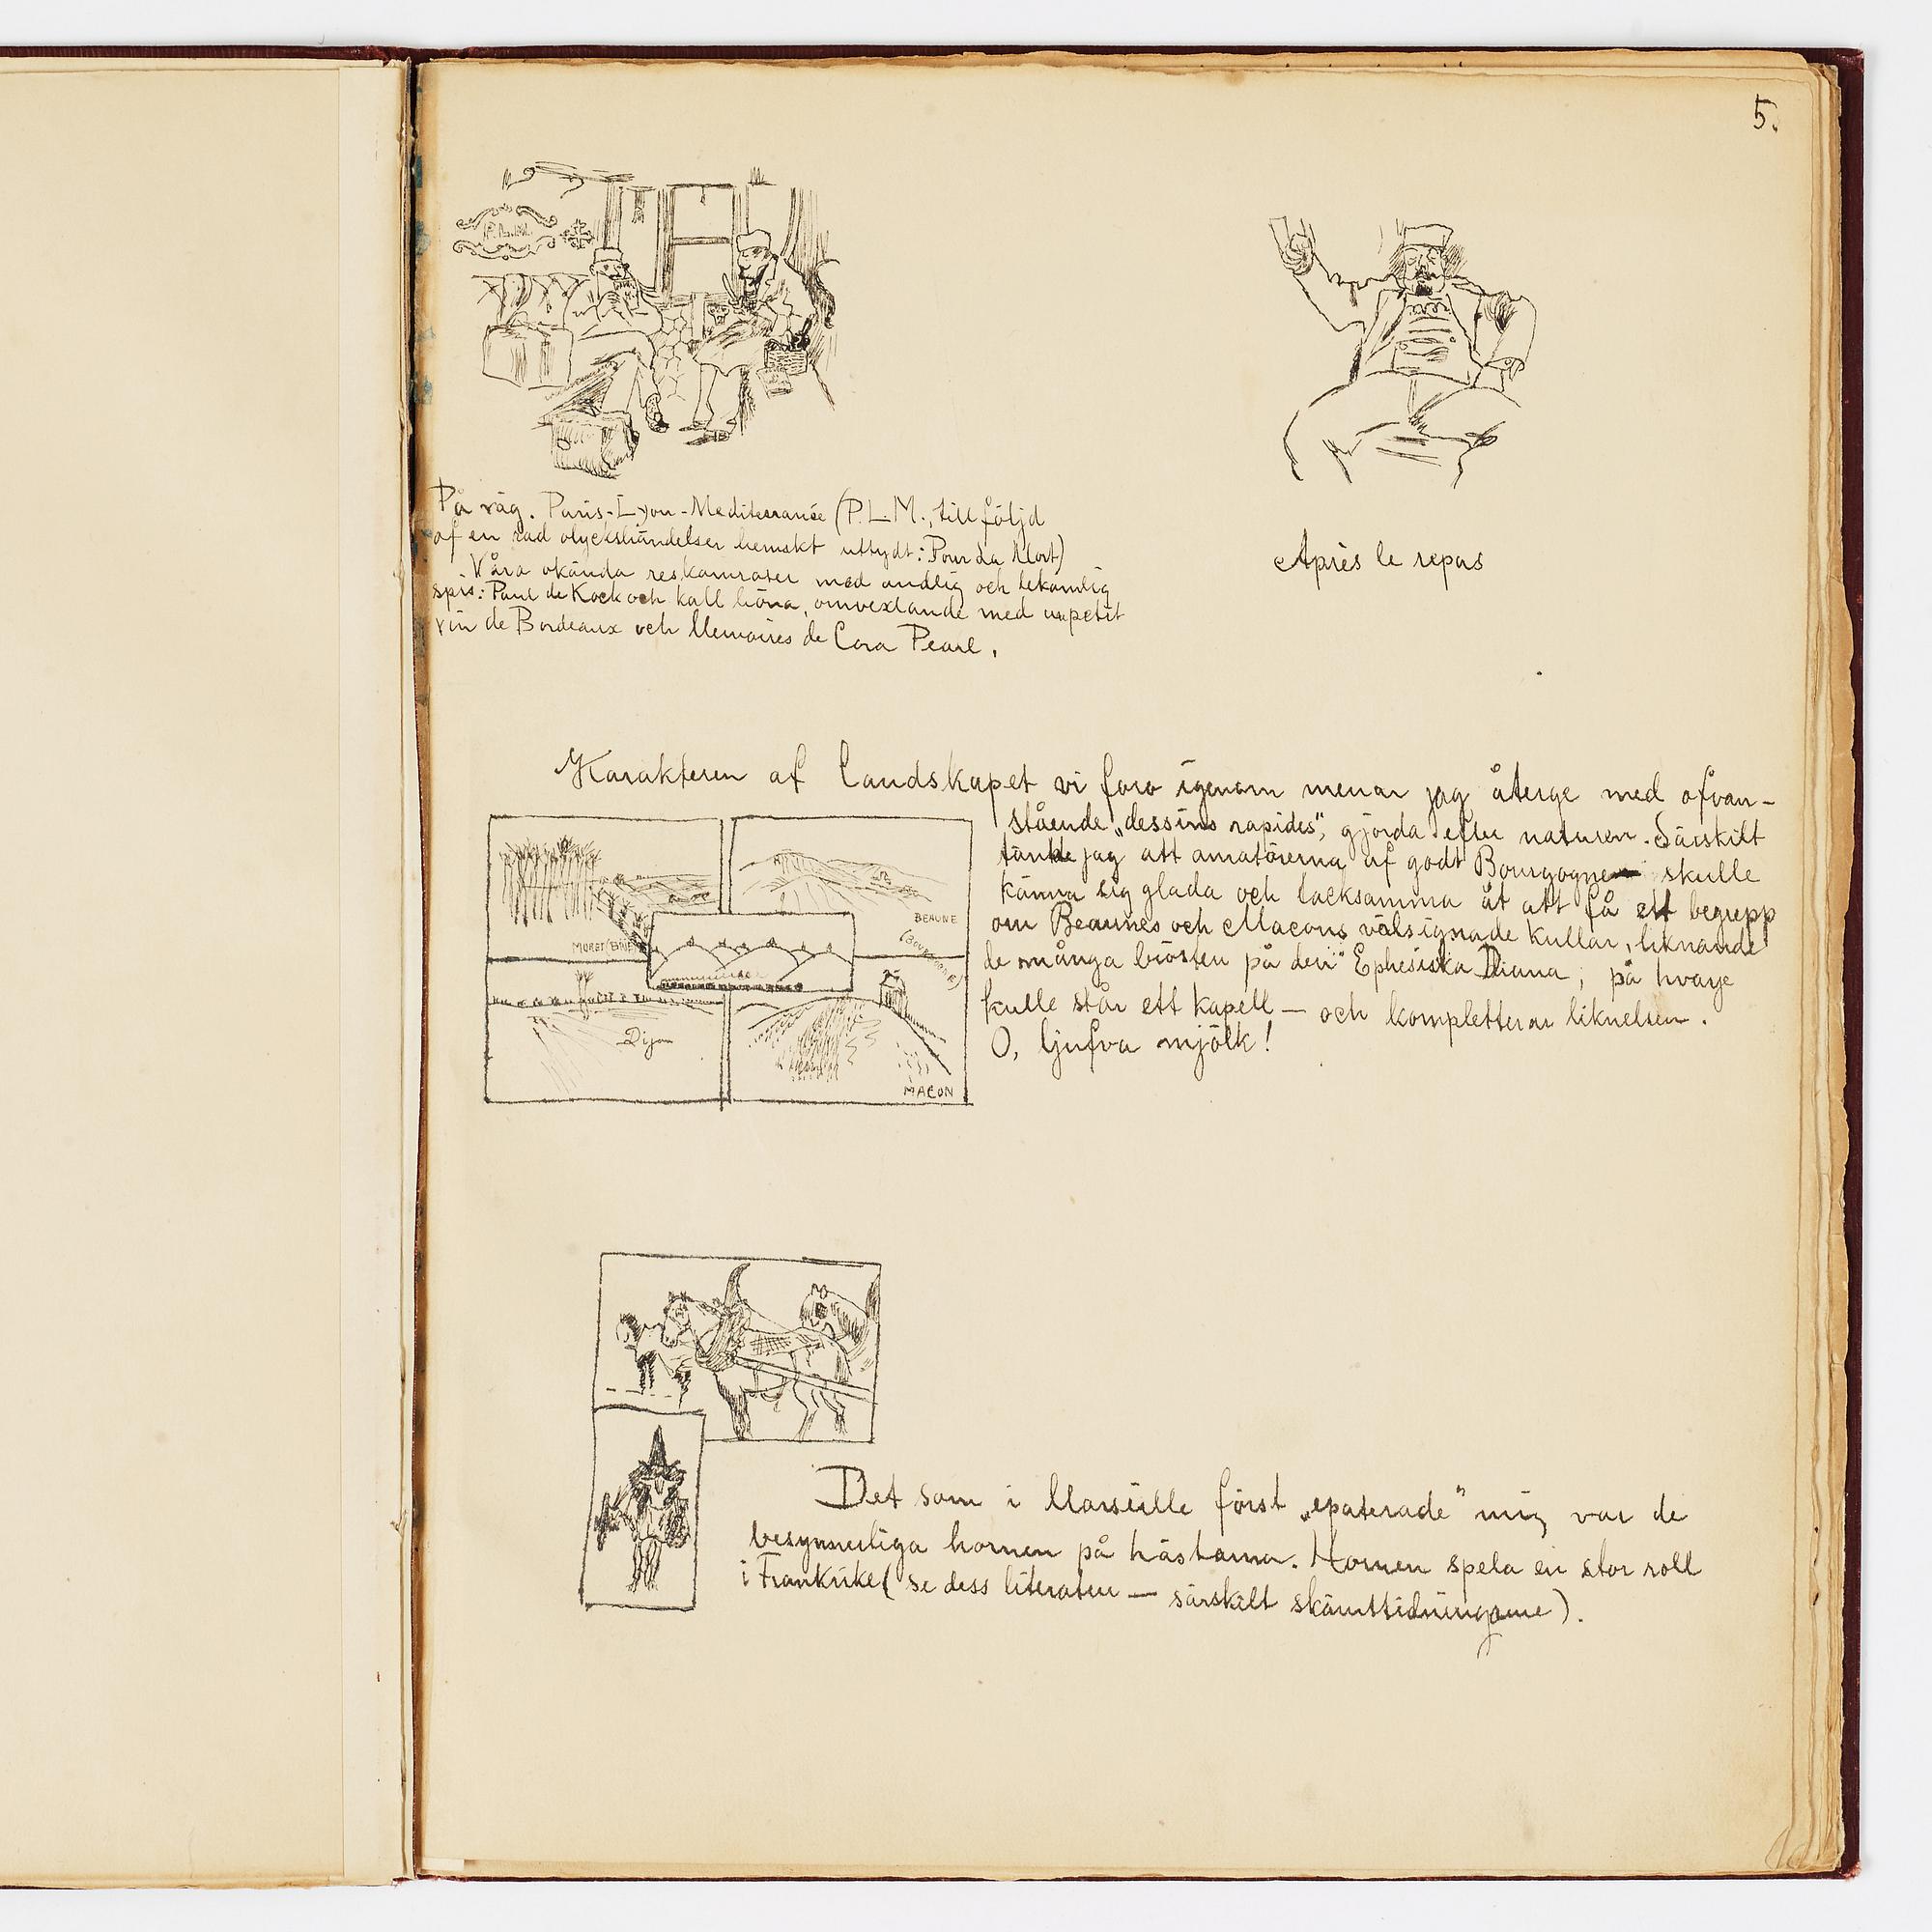 5.
P.L.M.
På väg. Paris-Lyon-Mediterranée (P.L.M., till följd
af en rad olyckshändelser hemskt uttydt: Pour La Mort)
Våra okända reskamrater med andlig och lekamlig
spis: Paul de Kock och kall höna, omvexlande med un petit
vin de Bordeaux och Memoires de Cora Pearl.
Après le repas
Karakteren af landskapet vi foro igenom menar jag återge med ofvan-
stående „dessins rapides", gjorda efter naturen. Särskilt
tänkte jag att amatörerna af godt Bourgogne skulle
känna sig glada och tacksamma åt att få ett begrepp
om Beaunes och Macons välsignade kullar, liknande
de många brösten på den Ephesiska Diana, på hvarje
kulle står ett kapell — och kompletterar liknelsen.
O, ljufva mjölk!
MORET (BRIE)
BEAUNE
(BOURGOGNE)
Dijon
MACON
Det som i Marseille först „epaterade" mig var de
besynnerliga hornen på hästarna. Hornen spela en stor roll
i Frankrike (se dess literatur — särskilt skämttidningarne).